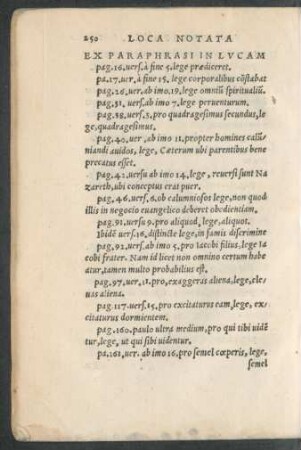 250 LOCA NOTATA
EX PARAPHRASI IN LVCAM
pag.16.vers.à fine 5.lege prædiceret.
pa.17.uer.à fine 15. lege corporalibus cõstabat
pag.26.uer.ab imo.19.lege omniũ spiritualiũ.
pag.51. vers.ab imo 7.lege peruenturum.
pag.58.vers.3.pro quadragesimus secundus,le
ge,quadragesimus.
pag.40.uer ,ab imo 11.propter homines calũ-
niandi auidos, lege, Cæterum ubi parentibus bene
precatus esset.
pag.42.uersu ab imo 14.lege , reuersi sunt Na
zareth,ubi conceptus erat puer.
pag.46.vers.6.ob calumniosos lege,non quod
illis in negocio euangelico deberet obedientiam.
pag.91.uersu 9.pro aliquod,lege,aliquot.
Ibidẽ uers.16.distincte lege,in famis discrimine
pag.92.uers.ab imo 5.pro Iacobi filius,lege Ia
cobi frater. Nam id licet non omnino certum habe
atur,tamen multo probabilius est.
pag.97.uer.11.pro,exaggeras aliena,lege,ele
uas aliena.
pag.117.uers.15.pro excitaturus eam,lege, ex-
citaturus dormientem.
pag.160.paulo ultra medium,pro qui tibi uidẽ
tur,lege, ut qui sibi uidentur.
pa.161.uer. ab imo 16.pro semel cœperis, lege,
semel